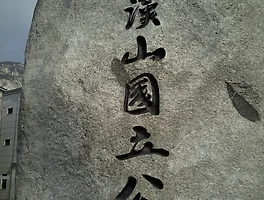 漢山國立公